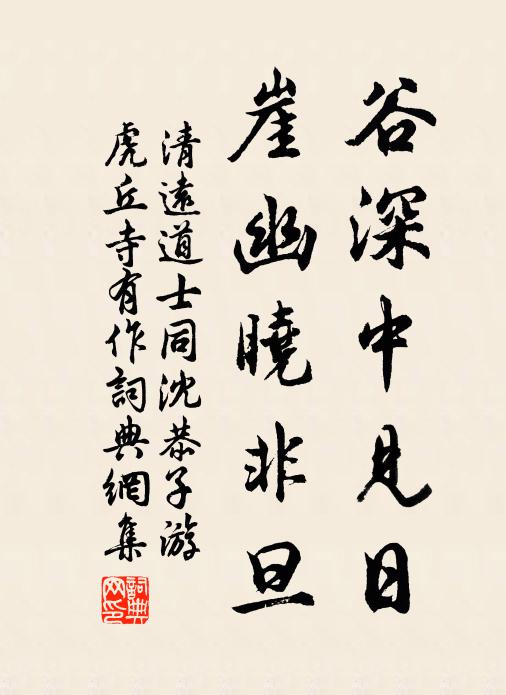 谷深中見日
崖幽曉非旦
清遠道士同沈恭子游
虎丘寺有作詞典網集
詞典網印